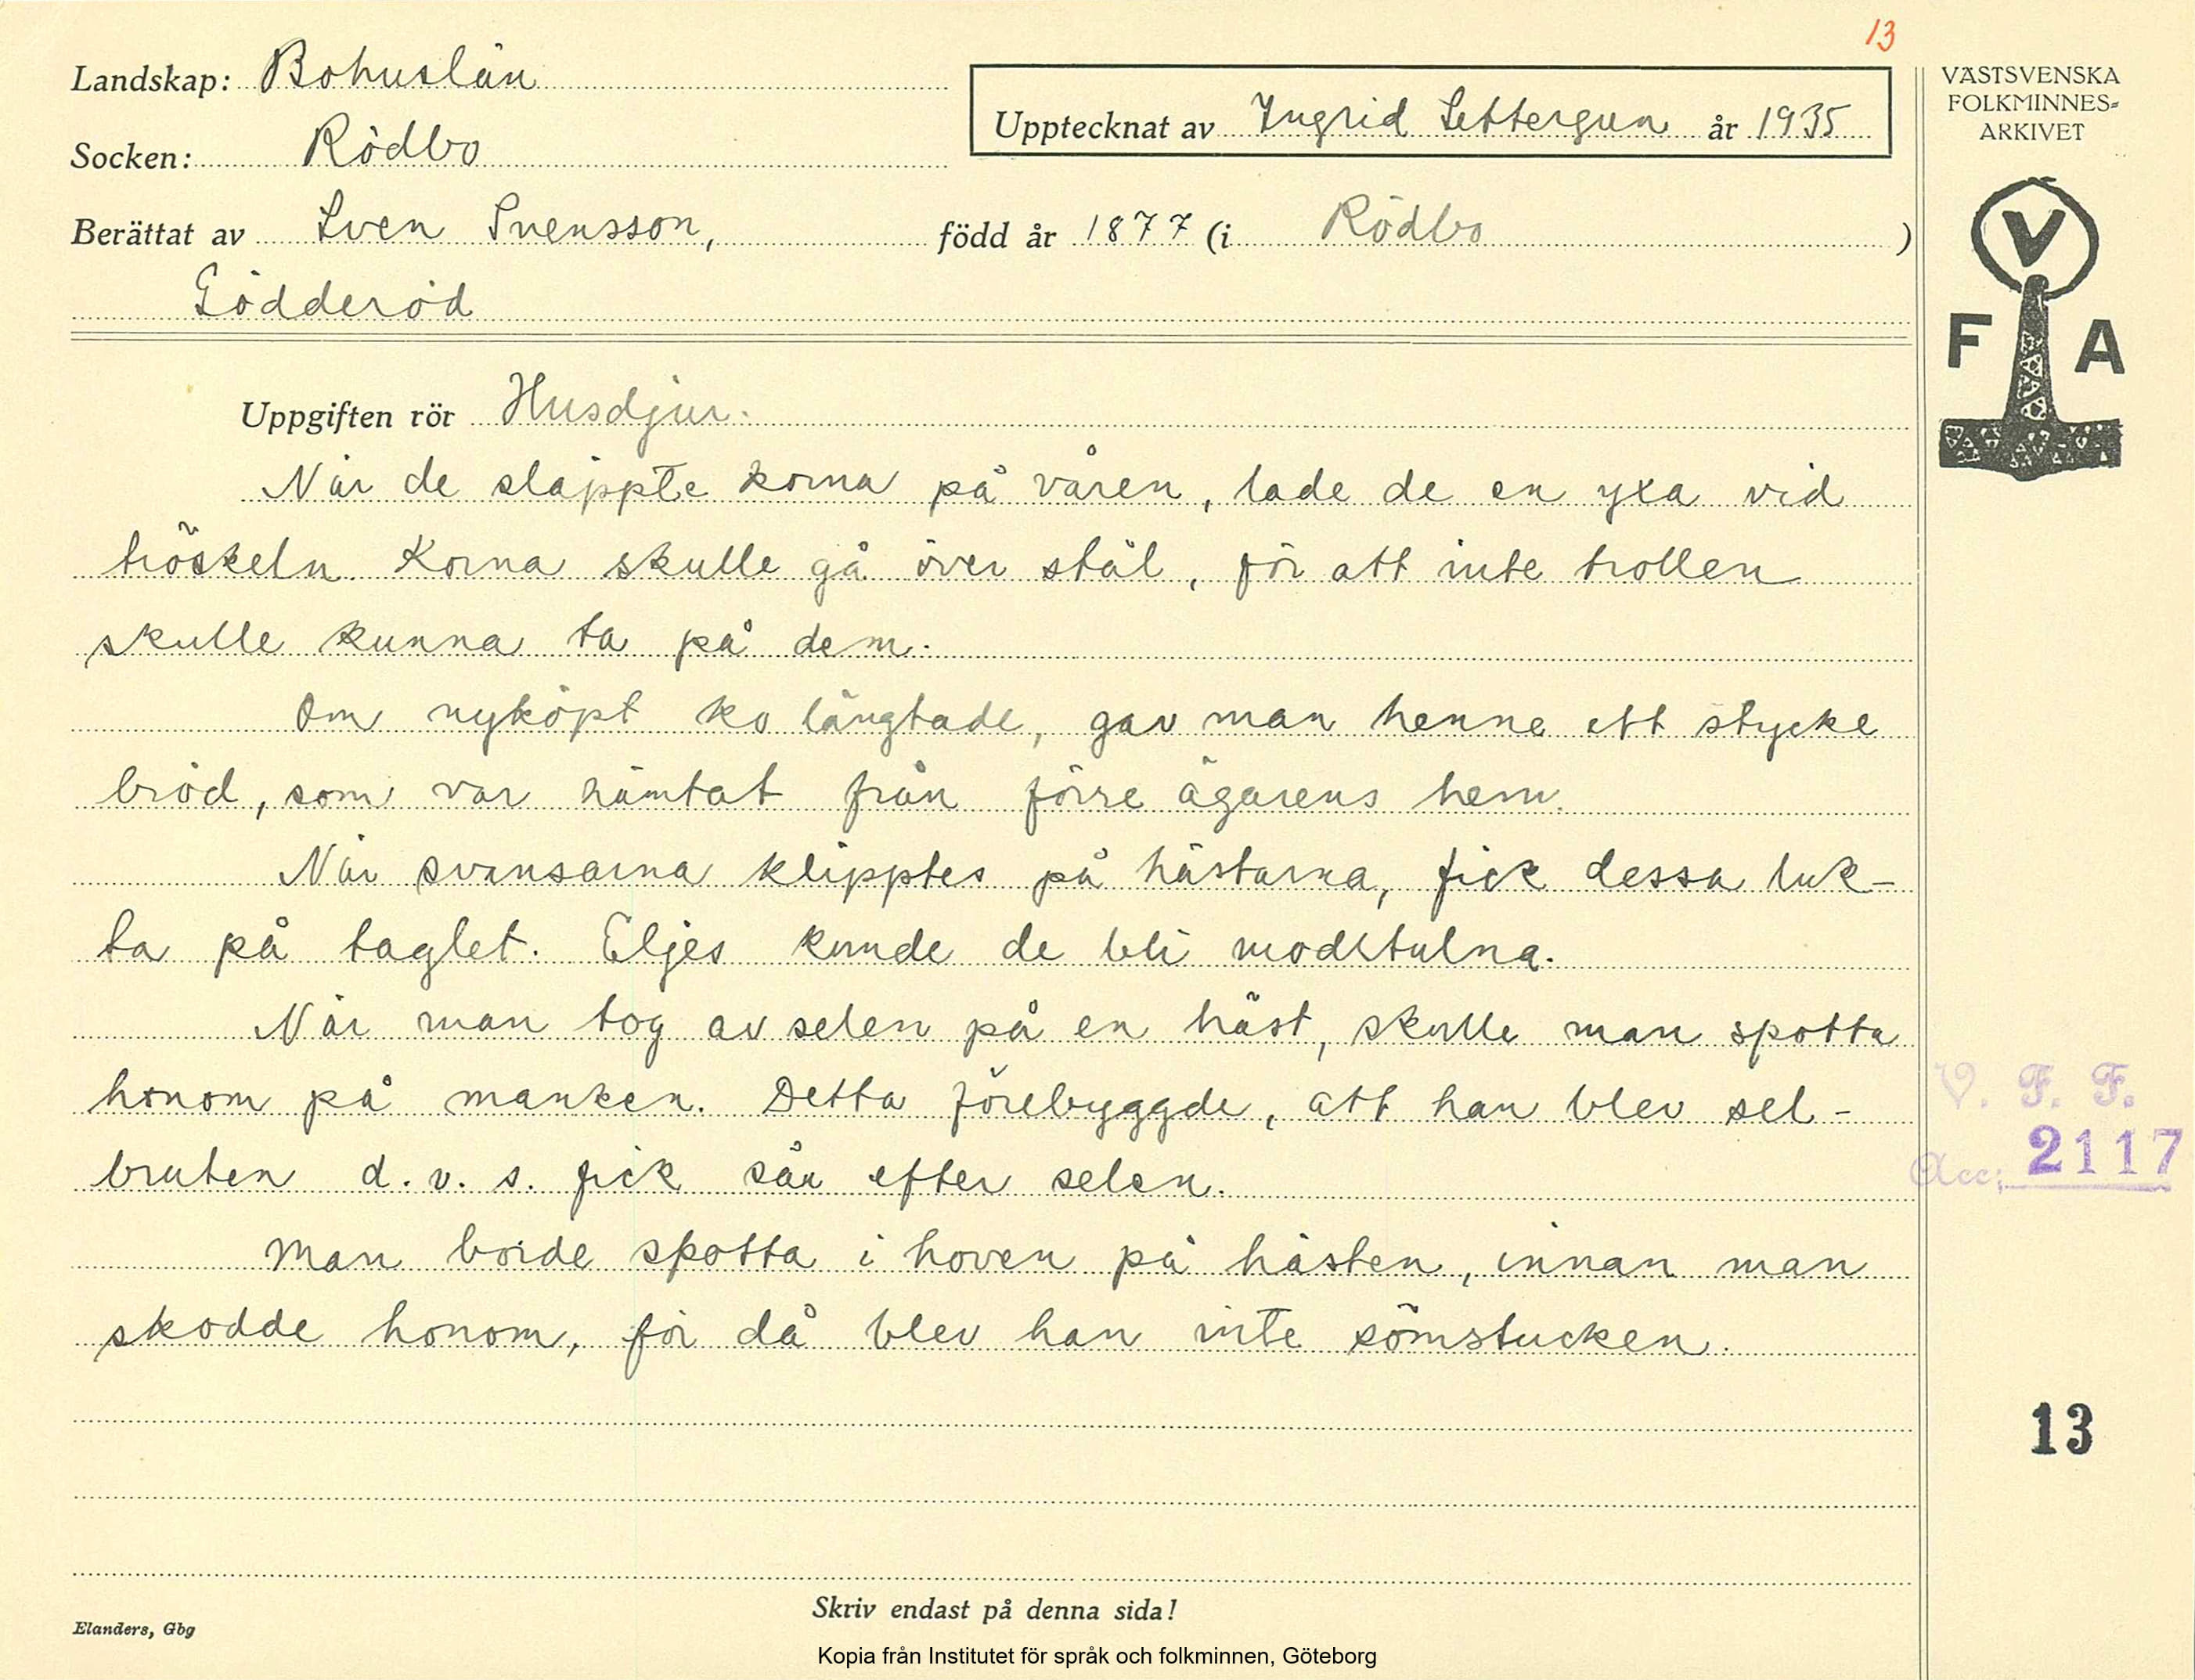 13
Landskap: Bohuslän
Socken: Rödbo
Upptecknat av Ingrid Settergren år 1935
Berättat av Sven Svensson, född år 1877 (i Rödbo)
Gödderöd
Uppgiften rör Husdjur.
När de släppte korna på våren, lade de en yxa vid
tröskeln. Korna skulle gå över stål, för att inte trollen
skulle kunna ta på dem.
Om nyköpt ko längtade, gav man henne ett stycke
bröd, som var hämtat från förre ägarens hem.
När svansarna klipptes på hästarna, fick dessa luk-
ta på taglet. Eljes kunde de bli modstulna.
När man tog av selen på en häst, skulle man spotta
honom på manken. Detta förebyggde, att han blev sel-
bruten d.v.s. fick sår efter selen.
Man borde spotta i hoven på hästen, innan man
skodde honom, för då blev han inte sömstucken.
Skriv endast på denna sida!
Elanders, Gbg
Kopia från Institutet för språk och folkminnen, Göteborg
VÄSTSVENSKA
FOLKMINNES-
ARKIVET
V
F A
V. F. F.
Acc: 2117
13